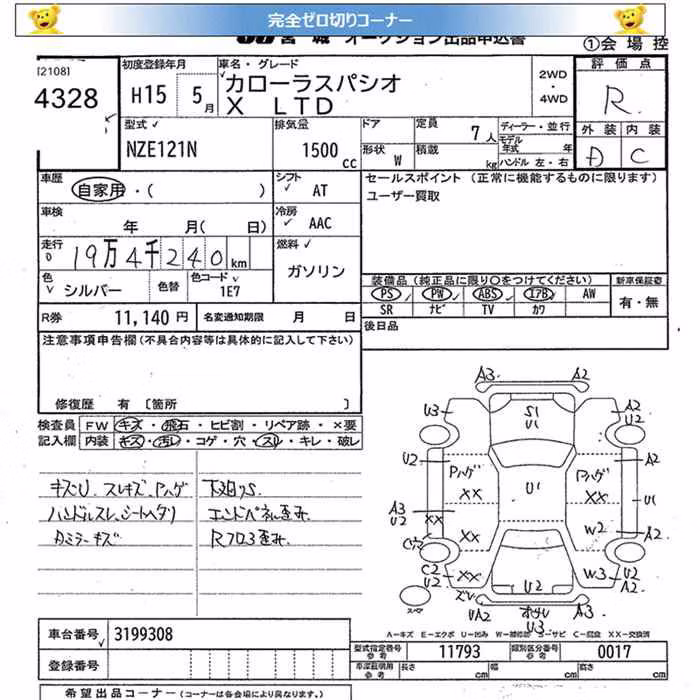 完全ゼロ切りコーナー
JU 宮城 オークション出品申込書
①会場控
[2108]
4328
初度登録年月
H15 5月
車名・グレード
カローラスパシオ
X LTD
2WD
・
4WD
評価点
R
外装 内装
D C
型式
NZE121N
排気量
1500cc
ドア
形状 W
定員 7人
積載 kg
ディーラー・並行
モデル年式 年
ハンドル 左・右
車歴
自家用・( )
シフト
AT
セールスポイント (正常に機能するものに限ります)
ユーザー買取
車検
年 月( 日)
冷房
AAC
走行
19万4千240km
燃料
ガソリン
色
シルバー
色替
色コード
1E7
装備品 (純正品に限り〇をつけてください)
新車保証書
PS PW ABS エアB AW
SR ナビ TV カワ
有・無
R券 11,140円
名変通知期限 月 日
後日品
注意事項申告欄(不具合内容等は具体的に記入して下さい)
修復歴 有 〔箇所
検査員記入欄
FW キズ・飛石・ヒビ割・リペア跡・×要
内装 キズ・汚レ・コゲ・穴・スレ・キレ・破レ
キズU スレキズ、Pハゲ
ハンドルスレ、シートヘタリ
エンドパネル歪み
A3 A2
U3 S1 U1 A2 U2
U2 Pハゲ Pハゲ A2
XX U1 XX U1
A3 U2 XX W2 A2
C2 U2 XX U2 W3 U2 A2
スペア
UA2 U3 A3
A-キズ E-エクボ U-凹み W-補修跡 S-サビ C-腐食 XX-交換済
車台番号 3199308
登録番号
型式指定番号 参考 11793
類別区分番号 参考 0017
車庫証明用 参考 長さ cm 幅 cm 高さ cm
希望出品コーナー (コーナーは各会場により異なります。)